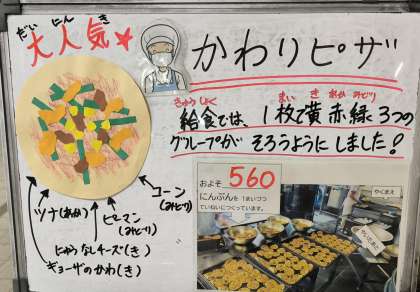 だい にん き
大人気★
かわりピザ
きゅうしょく まい き あか みどり
給食では、1枚で黄赤緑3つの
グループが そろうようにしました!
コーン
(みどり)
ツナ(あか)
ピーマン
(みどり)
にゅうなしチーズ(き)
ギョーザのかわ(き)
およそ 560
にんぶんを 1まいづつ
ていねいにつくっています。
やくまえ